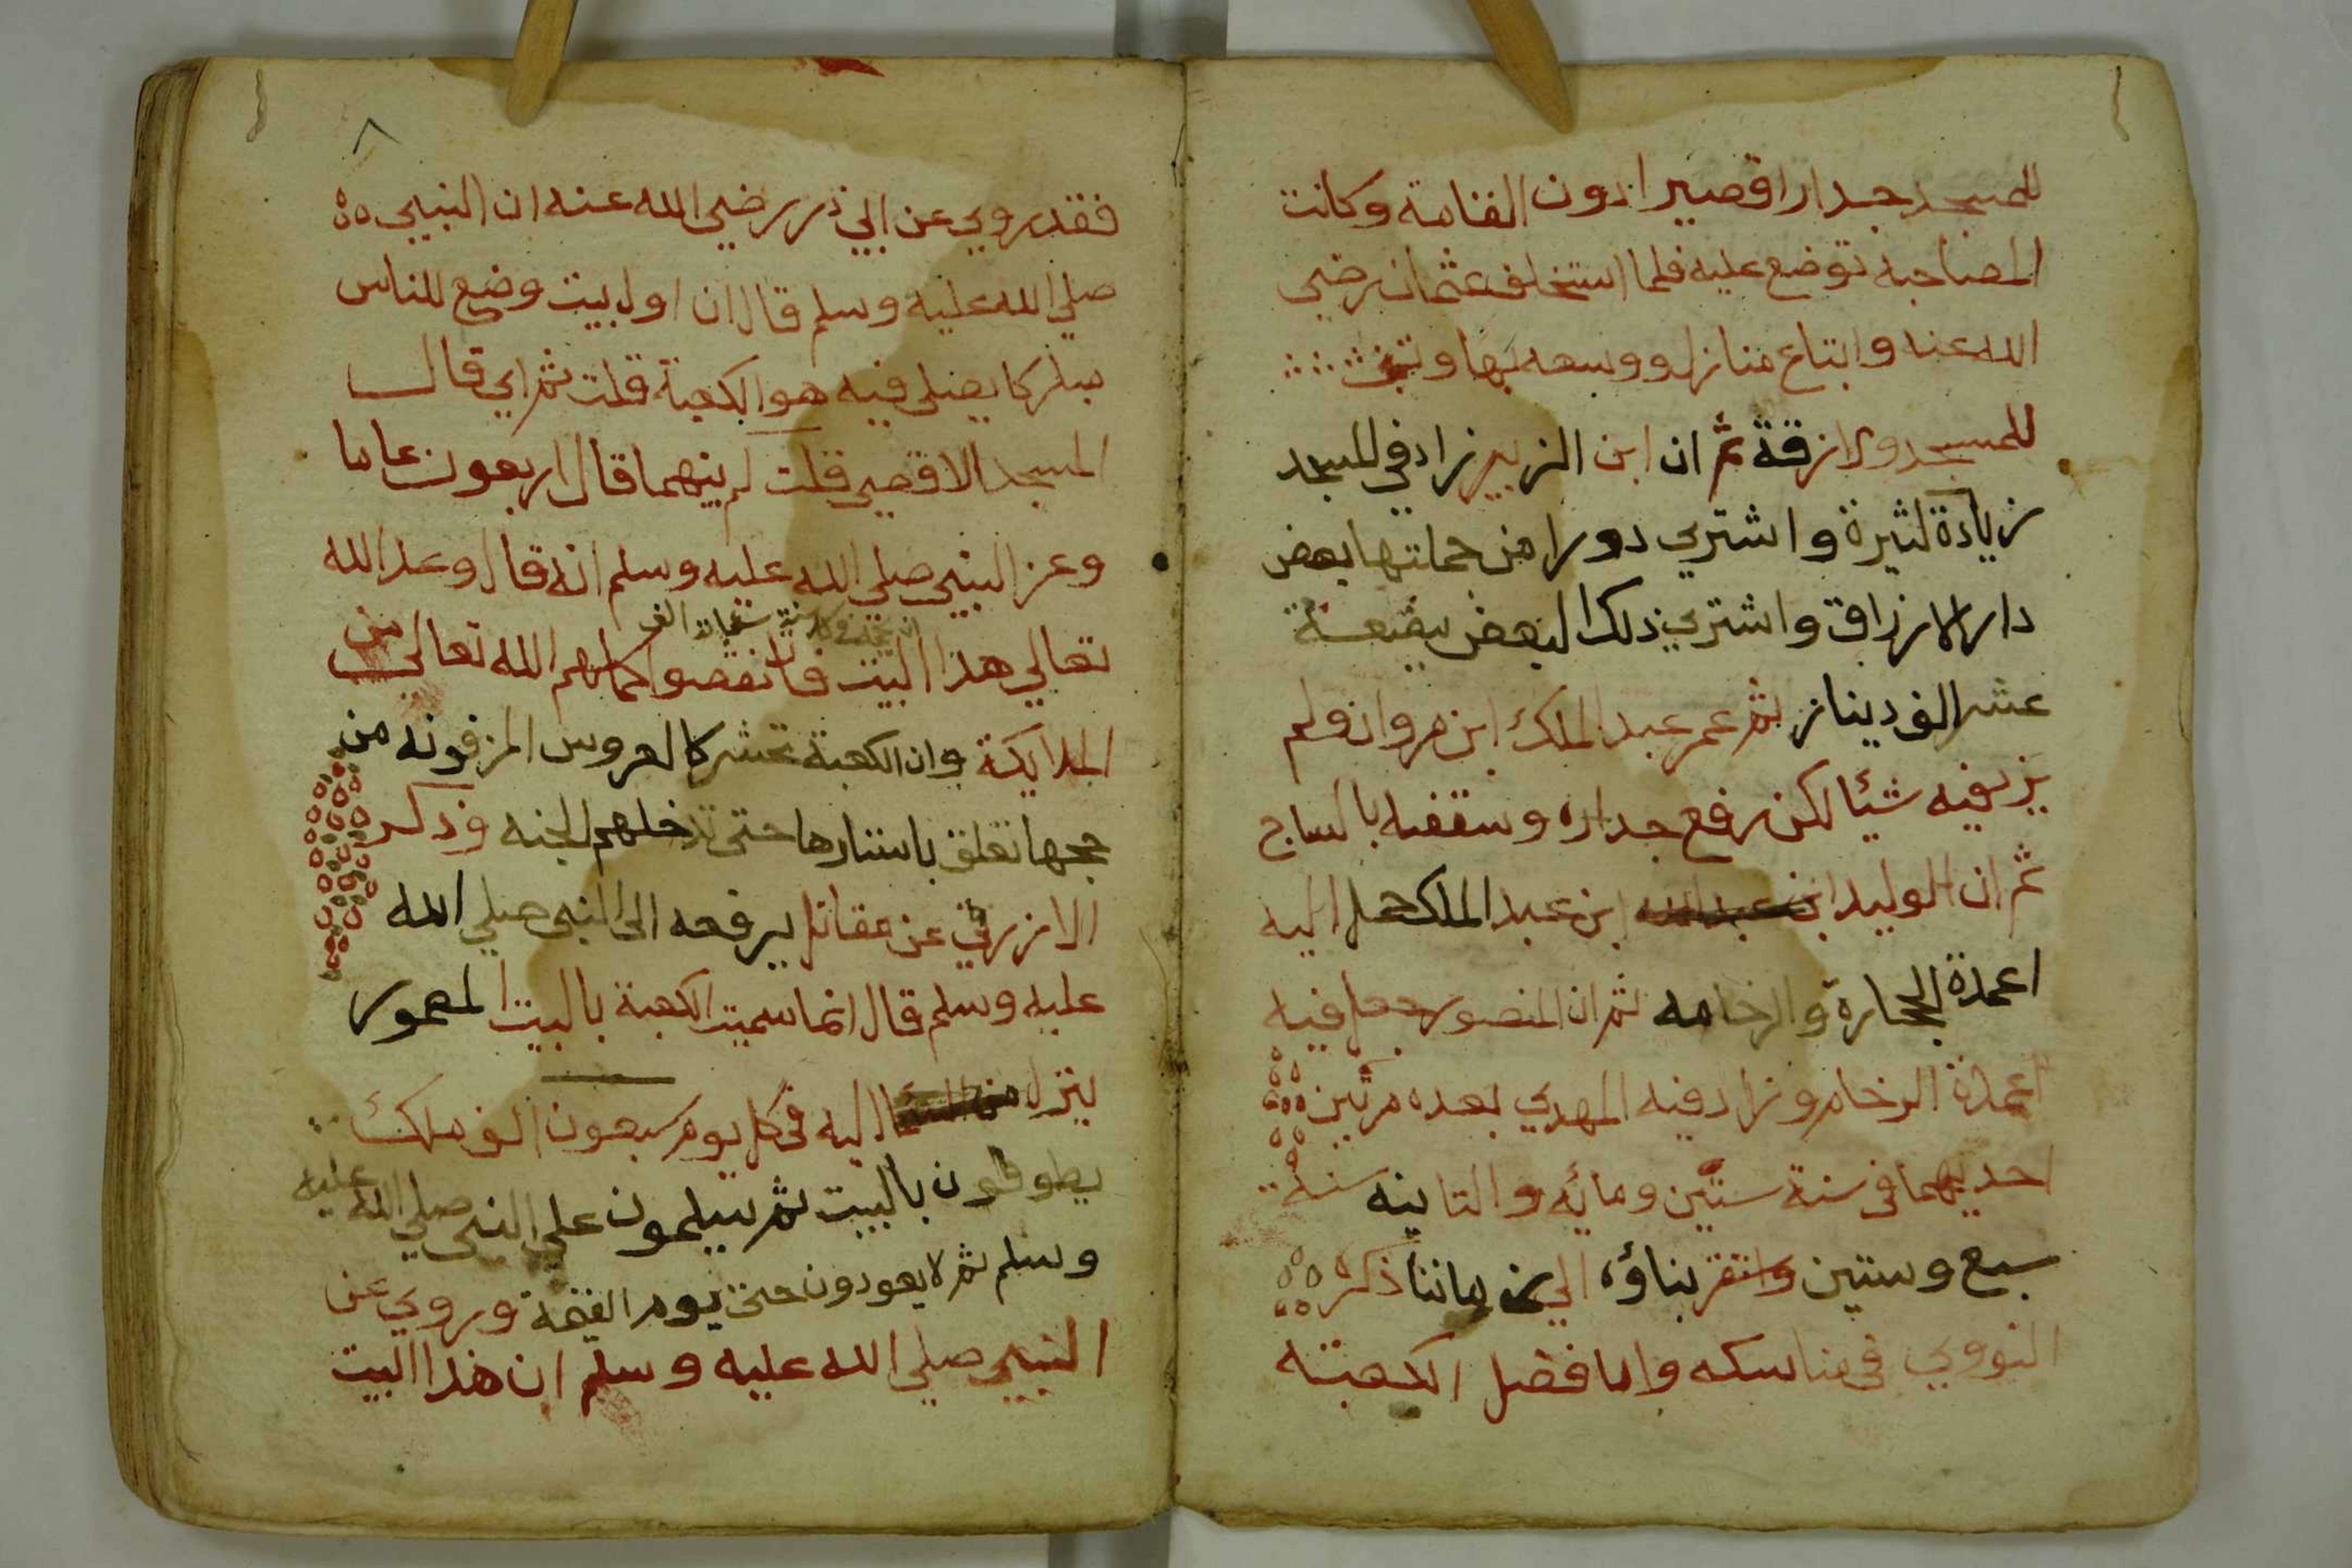 للمسجد جدارا قصيرا دون القامة وكانت
المصابيح توضع عليه فلما استخلف عثمان رضي
الله عنه وابتاع منازل ووسعه بها وبني
للمسجد والازقة ثم ان ابن الزبير زاد في المسجد
زيادة كثيرة واشتري دورا من جملتها بعض
دار الازراق واشتري ذلك البعض ببضعة
عشر الف دينار ثم عمر عبد الملك ابن مروان ولم
يزد فيه شيئا لكن رفع جداره وسقفه بالساج
ثم ان الوليد ابن عبد الملك حمل اليه
اعمدة الحجارة والرخامه ثم ان المنصور جعل فيه
اعمدة الرخام وزاد فيه المهدي بعده مرتين
احديهما في سنة ستين ومائه والثانيه سنة
سبع وستين واستقر بناؤه الي زماننا ذكره
النووي في مناسكه واما فضل الكعبة
٨
فقد روي عن ابي ذر رضي الله عنه ان النبيي
صلي الله عليه وسلم قال ان اول بيت وضع للناس
مباركا يصلي فيه هو الكعبة قلت ثم اي قال
المسجد الاقصي قلت كم بينهما قال اربعون عاما
وعن النبيي صلي الله عليه وسلم انه قال وعد الله
تعالي هذا البيت ان يحجه في كل سنة ستماية الف فان نقصوا كملهم الله تعالي من
الملايكة وان الكعبة تحشر كالعروس المزفونه من
حجها تعلق باستارها حتي تدخلهم الجنه وذكر
الازرقي عن مقاتل يرفعه الي النبي صلي الله
عليه وسلم قال انما سميت الكعبة بالبيت المعمور
ينزل اليه في كل يوم سبعون الف ملك
يطوفون بالبيت ثم يسلمون علي النبي صلي الله عليه
وسلم ثم لا يعودون حتي يوم القيمة وروي عن
النبيي صلي الله عليه وسلم ان هذا البيت